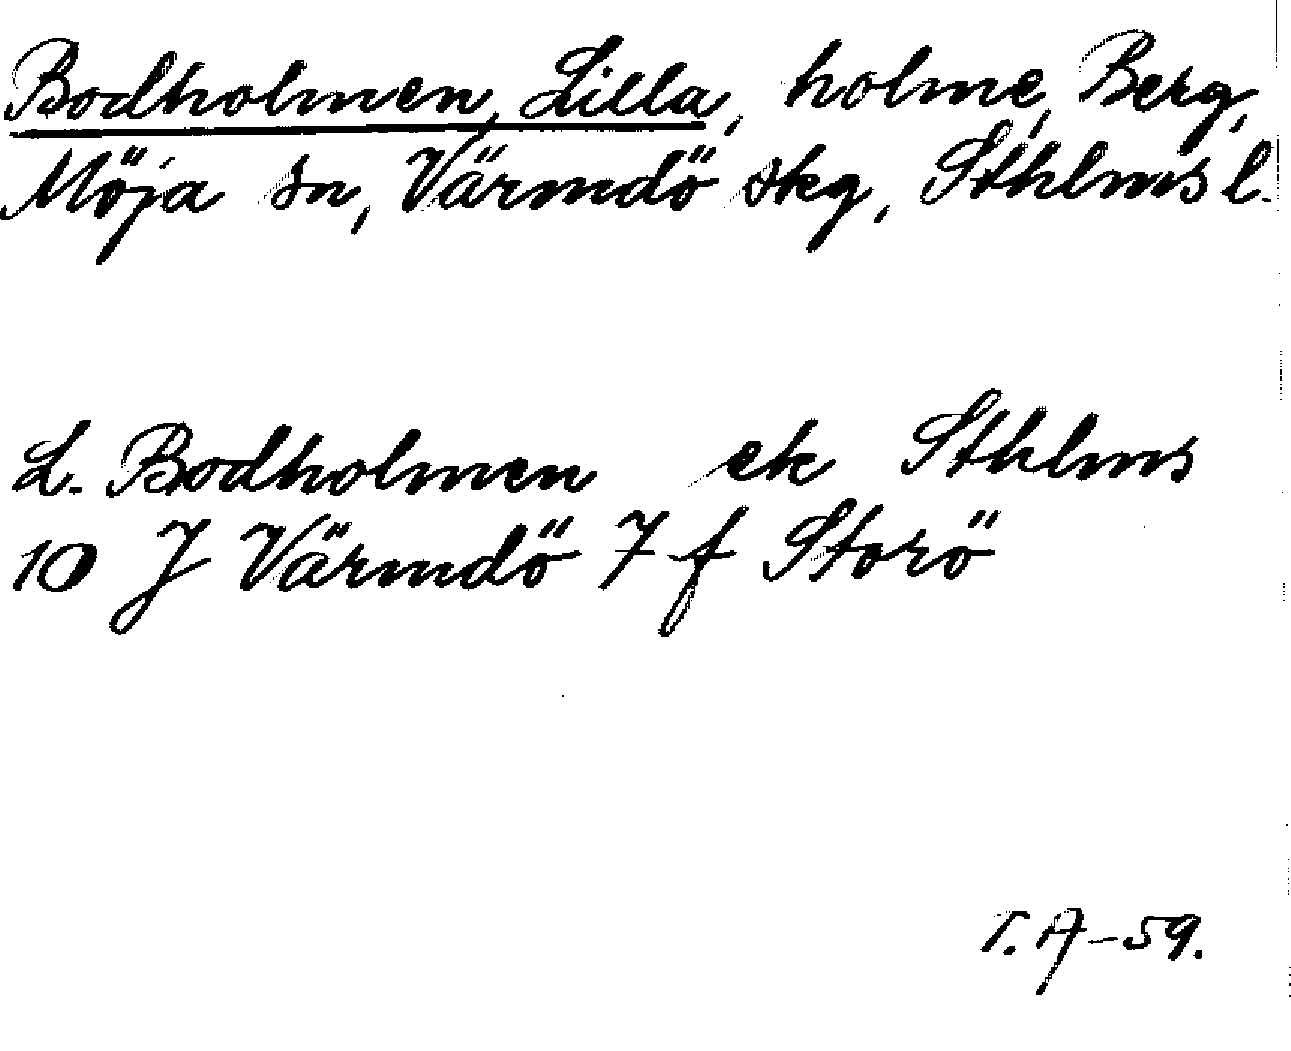 Bodholmen, Lilla, holme, Berg,
Möja sn, Värmdö skg, Sthlms l.
L. Bodholmen ek Sthlms
10 J Värmdö 7 f Storö
T. A-59.